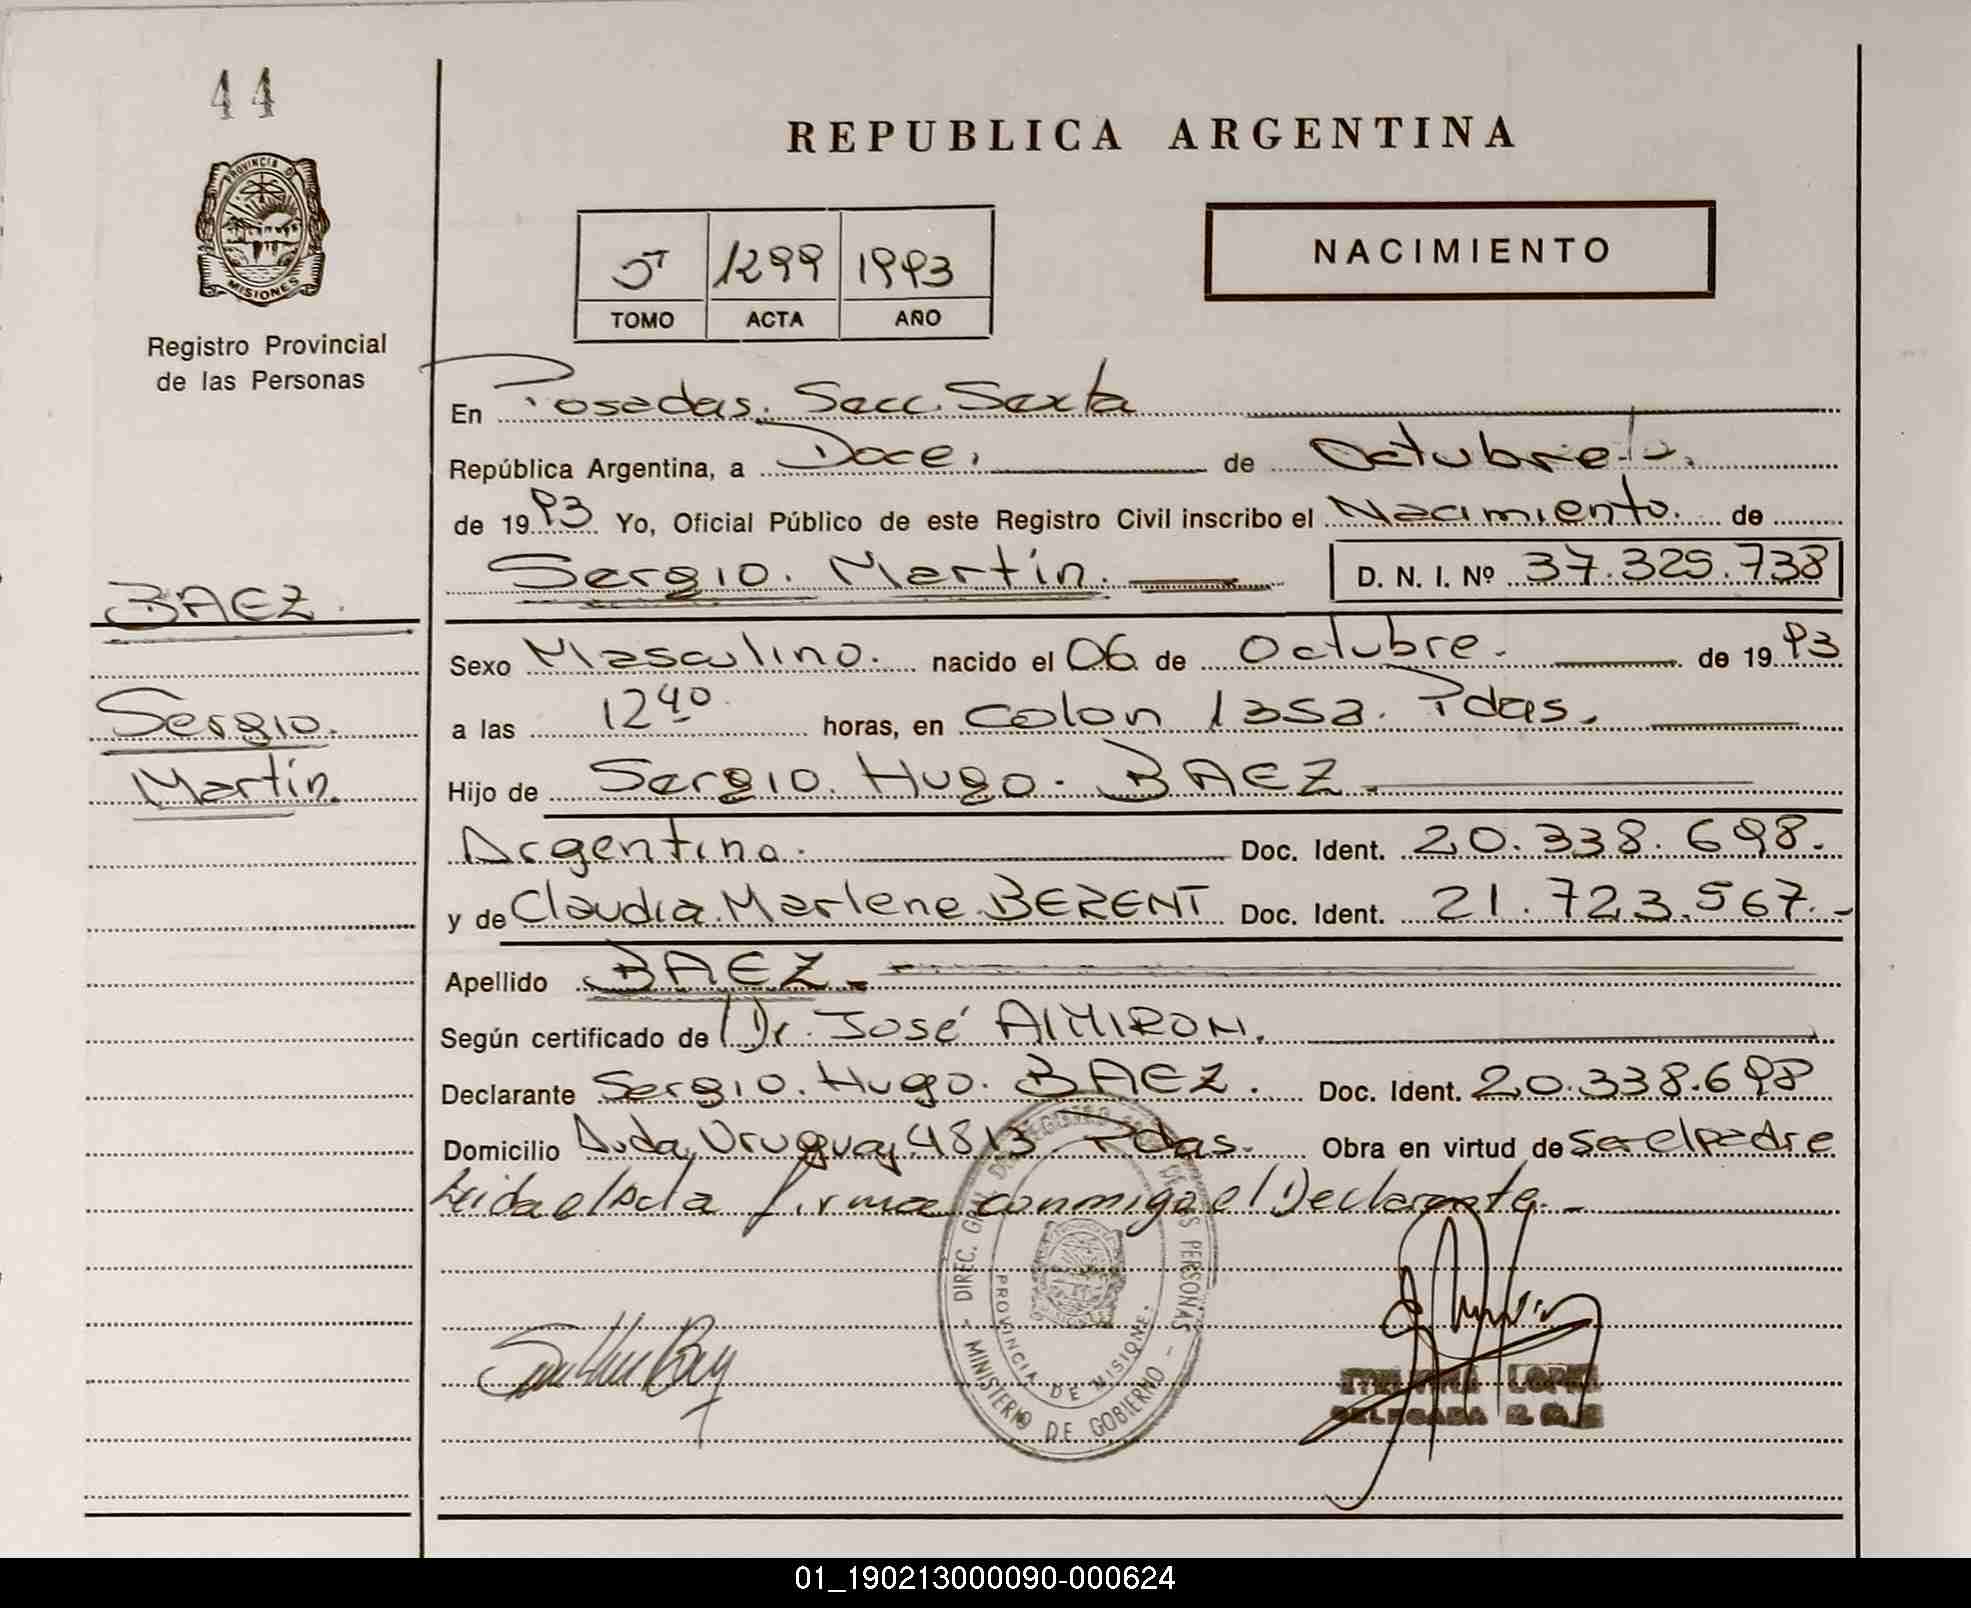 44
PROVINCIA DE
MISIONES
Registro Provincial
de las Personas
REPUBLICA ARGENTINA
NACIMIENTO
1299 1993
TOMO ACTA AÑO
En Posadas. Secc. Sexta
República Argentina, a Doce. de Octubre
de 1993 Yo, Oficial Público de este Registro Civil inscribo el Nacimiento. de
Sergio. Martín. D. N. I. Nº 37.325.738
BAEZ.
Sergio.
Martín.
Sexo Masculino. nacido el 06 de Octubre. de 1993
a las 12 40 horas, en Colon 1353. Pdas.
Hijo de Sergio. Hugo. BAEZ.
Argentino. Doc. Ident. 20.338.698.
y de Claudia Marlene BERENT Doc. Ident. 21.723.567.-
Apellido BAEZ.
Según certificado de Dr. José AlMIRON.
Declarante Sergio. Hugo. BAEZ. Doc. Ident. 20.338.698
Domicilio Avda, Uruguay 4813 Pdas. Obra en virtud de ser el padre
Leida el Acta firma conmigo el Declarante.-
DIREC. GRAL. DE REGISTRO DE LAS PERSONAS
PROVINCIA DE MISIONES
MINISTERIO DE GOBIERNO
LOPEZ
DELEGADA
01_190213000090-000624